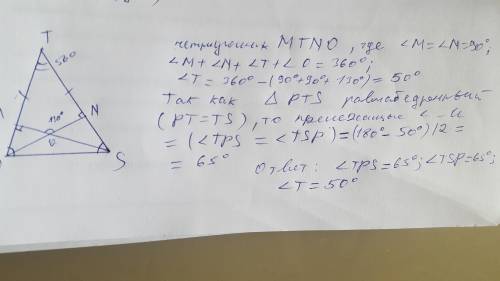 T
50°
N
O
S
четырёхугольник MTNO, где ∠M=∠N=90°,
∠M+∠N+∠T+∠O=360°;
∠T=360°-(90°+90°+130°)=50°
Так как △PTS равнобедренный
(PT=TS), то прилежащие ∠-и
=(∠TPS=∠TSP)=(180°-50°)/2=
=65°
Ответ: ∠TPS=65°; ∠TSP=65°;
∠T=50°